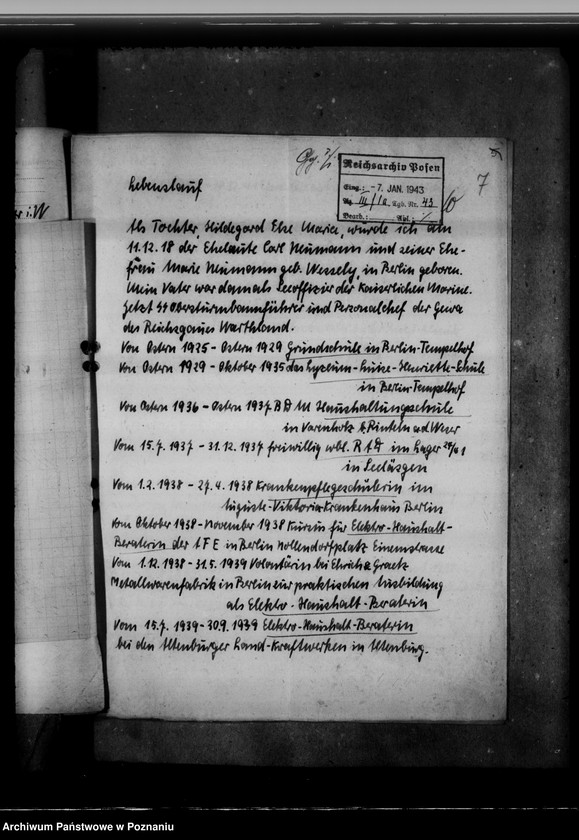 7
Reichsarchiv Posen
Eing.: -7. JAN. 1943
Tgb. Nr. 43
Bearb.: Abl.:
Lebenslauf
Als Tochter, Hildegard Else Marie, wurde ich am
11.12.18 der Eheleute Carl Neumann und seiner Ehe-
frau Marie Neumann geb. Wessely, in Berlin geboren.
Mein Vater war damals Seeoffizier der Kaiserlichen Marine.
Jetzt SS Obersturmbannführer und Personalchef der Gewa
des Reichsgaues Warthland.
Von Ostern 1925 - Ostern 1929 Grundschule in Berlin-Tempelhof
Von Ostern 1929 - Oktober 1935 das Lyzeum-Luise-Henriette-Schule
in Berlin-Tempelhof
Von Ostern 1936 - Ostern 1937 B D M Haushaltungsschule
in Varenholz b/Rinteln a.d. Weser
Vom 15.7. 1937 - 31.12. 1937 freiwillig wbl. R A D im Lager
in Seeläsgen
Vom 1.2. 1938 - 27.4. 1938 Krankenpflegeschülerin im
Auguste-Viktoria-Krankenhaus Berlin
Vom Oktober 1938 - November 1938 Kursus für Elektro-Haushalt-
Beraterin der A F E in Berlin Nollendorfplatz Einemstrasse
Vom 1.12. 1938 - 31.5. 1939 Volontärin bei Ehrich & Graetz
Metallwarenfabrik in Berlin zur praktischen Ausbildung
als Elektro-Haushalt-Beraterin
Vom 15.7. 1939 - 30.9. 1939 Elektro-Haushalt-Beraterin
bei den Altenburger Land-Kraftwerken in Altenburg.
Archiwum Państwowe w Poznaniu